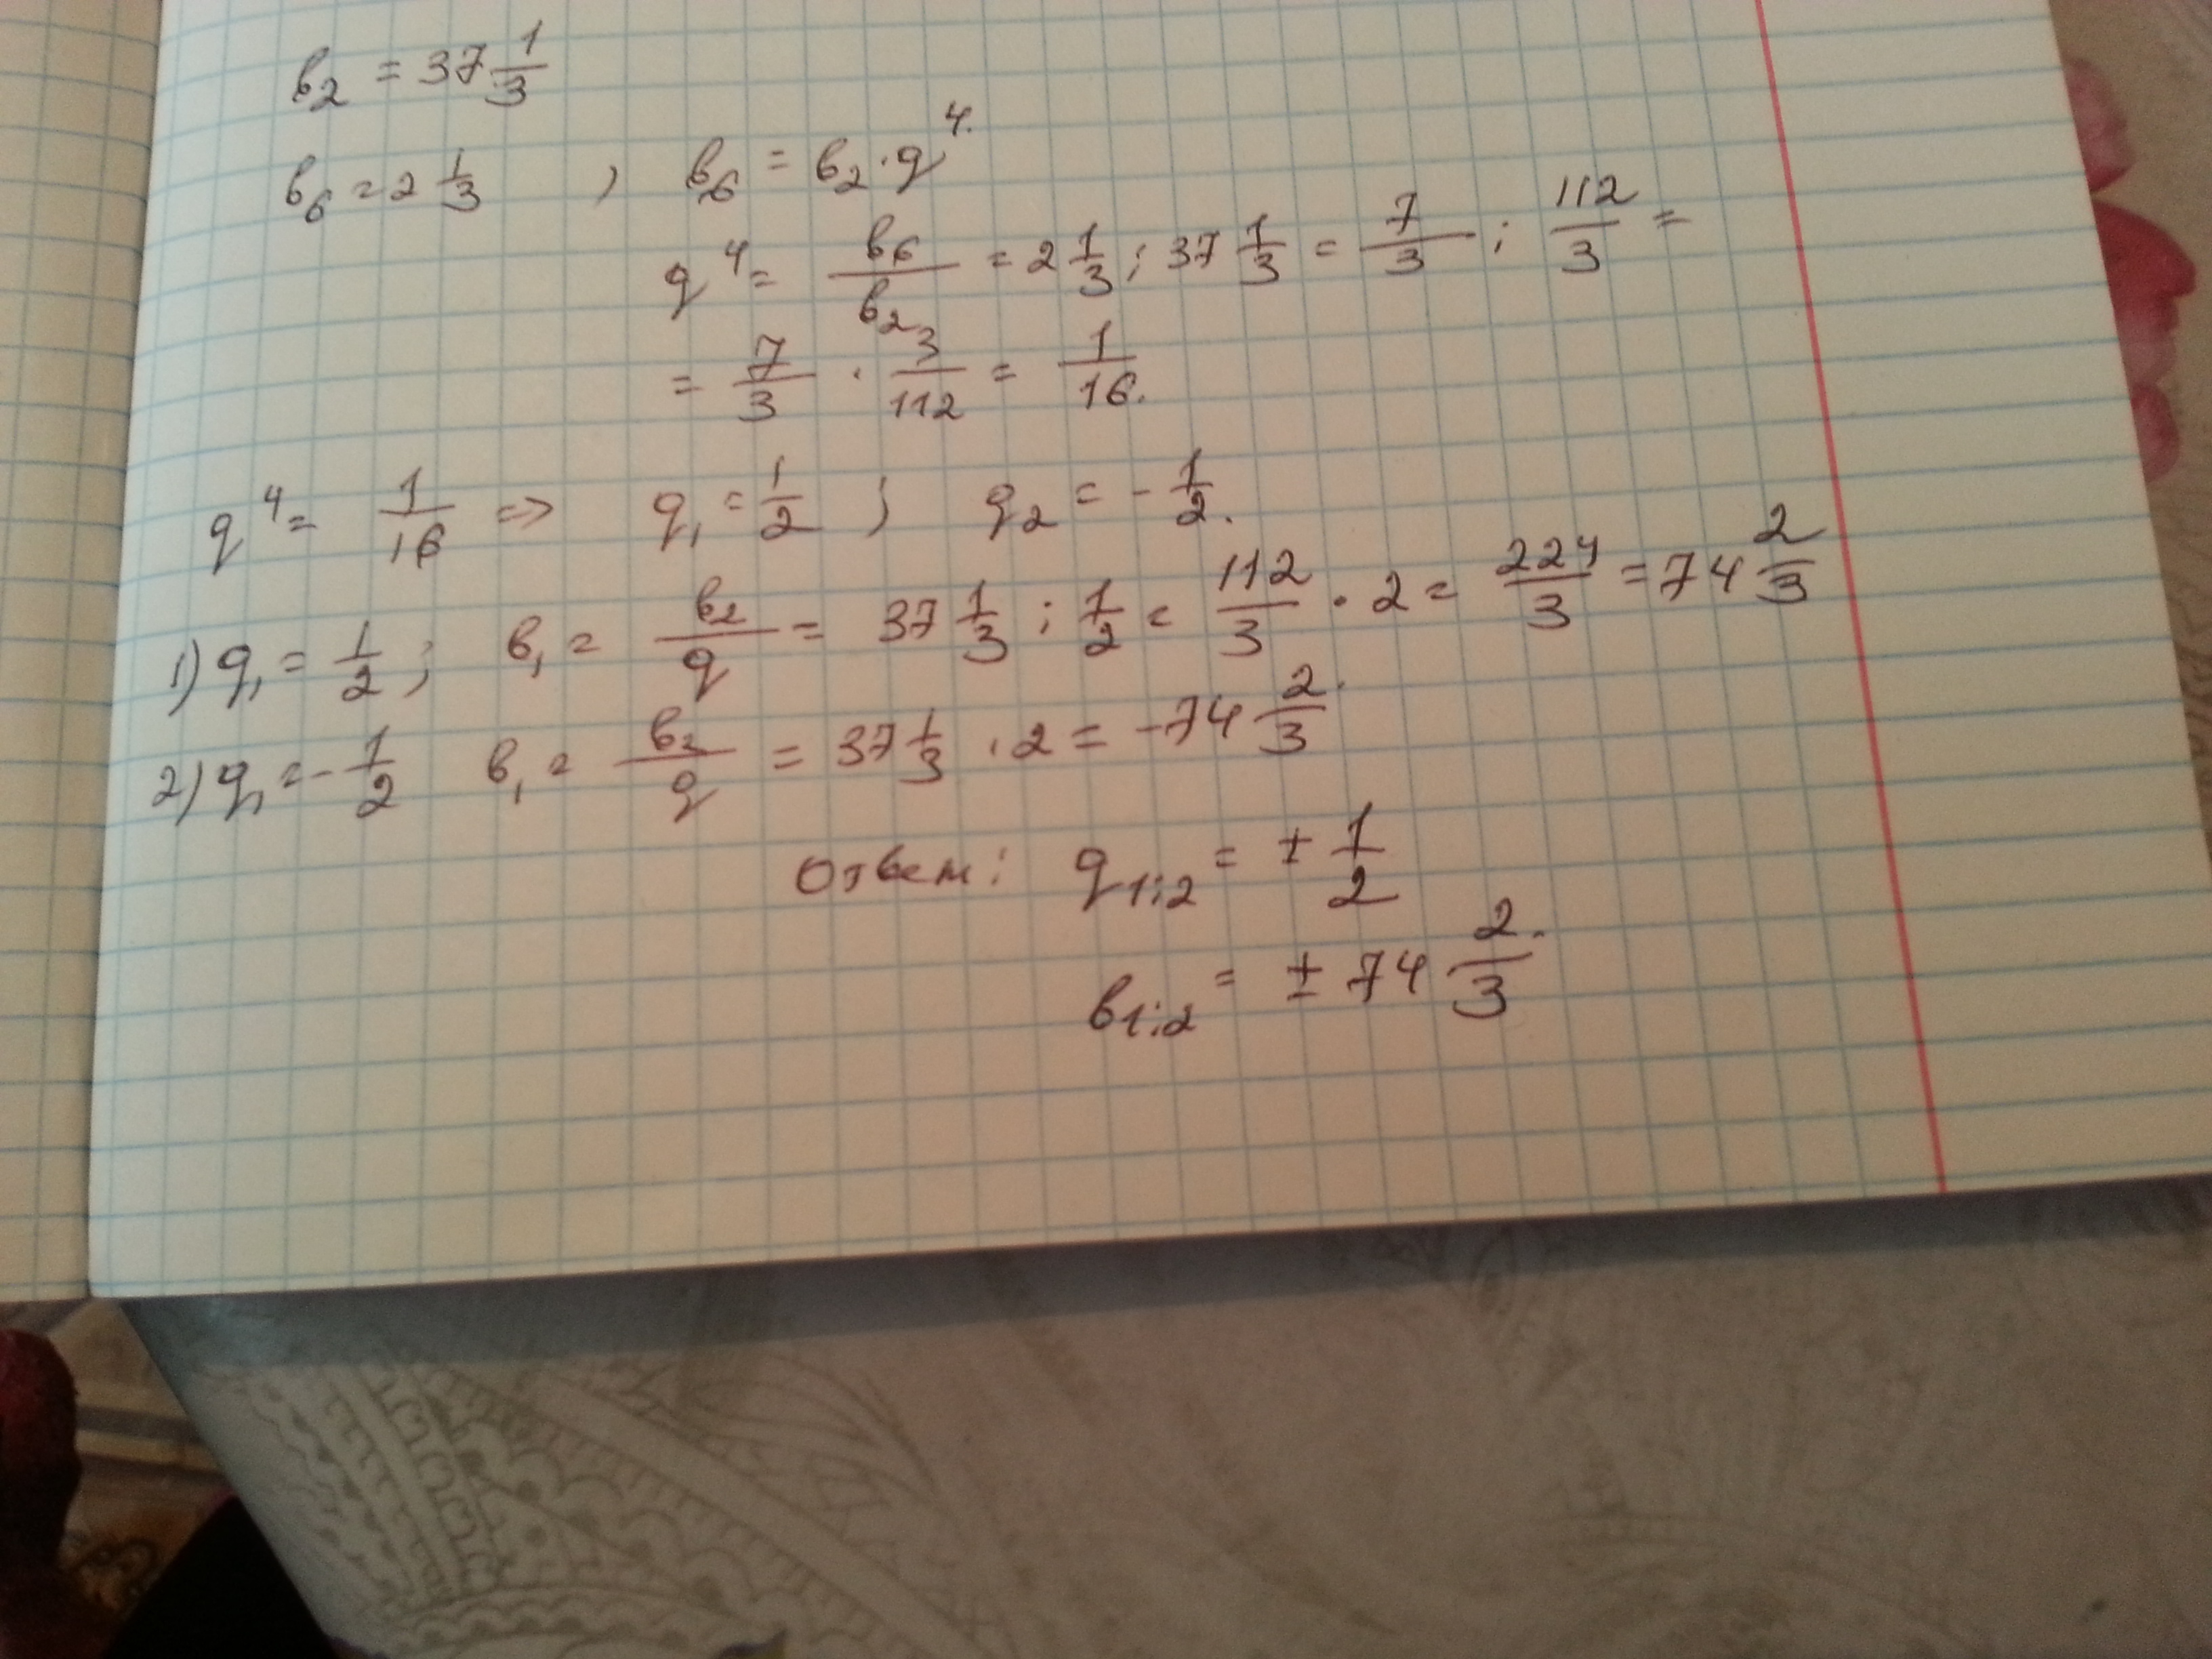 в₂ = 37 1/3
в₆ = 2 1/3 , в₆ = в₂ · q⁴.
q⁴ = в₆/в₂ = 2 1/3 : 37 1/3 = 7/3 : 112/3 =
= 7/3 · 3/112 = 1/16.
q⁴ = 1/16 => q₁ = 1/2 ; q₂ = - 1/2.
1) q₁ = 1/2 ; в₁ = в₂/q = 37 1/3 : 1/2 = 112/3 · 2 = 224/3 = 74 2/3
2) q₁ = - 1/2 в₁ = в₂/q = 37 1/3 · 2 = -74 2/3.
Ответ: q₁;₂ = ± 1/2
в₁;₂ = ± 74 2/3.